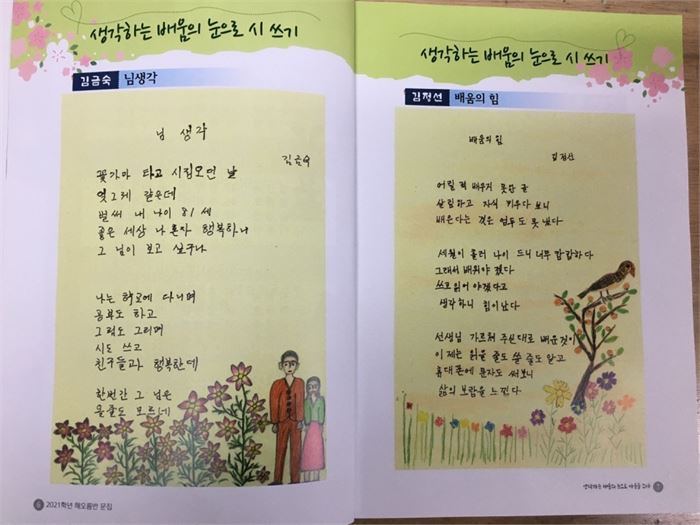 생각하는 배움의 눈으로 시 쓰기
김금숙 님생각
님 생각
김금숙
꽃가마 타고 시집오던 날
엊그제 같은데
벌써 내 나이 81세
좋은 세상 나 혼자 행복하니
그 님이 보고 싶구나
나는 학교에 다니며
공부도 하고
그림도 그리며
시도 쓰고
친구들과 행복한데
한번간 그 님은
웃을도 모르네
6 2021학년 해오름반 문집
생각하는 배움의 눈으로 시 쓰기
김정선 배움의 힘
배움의 힘
김정선
어릴 적 배우지 못한 글
살림하고 자식 키우다 보니
배운다는 것은 엄두도 못 냈다
세월이 흘러 나이 드니 너무 답답하다
그래서 배워야 겠다
쓰고 읽어 야겠다고
생각하니 힘이 났다
선생님 가르쳐 주신대로 배운것이
이제는 읽을 줄도 쓸 줄도 알고
휴대폰에 문자도 써보니
삶의 보람을 느낀다
생각하는 배움의 눈으로 마음을 쓰다 7